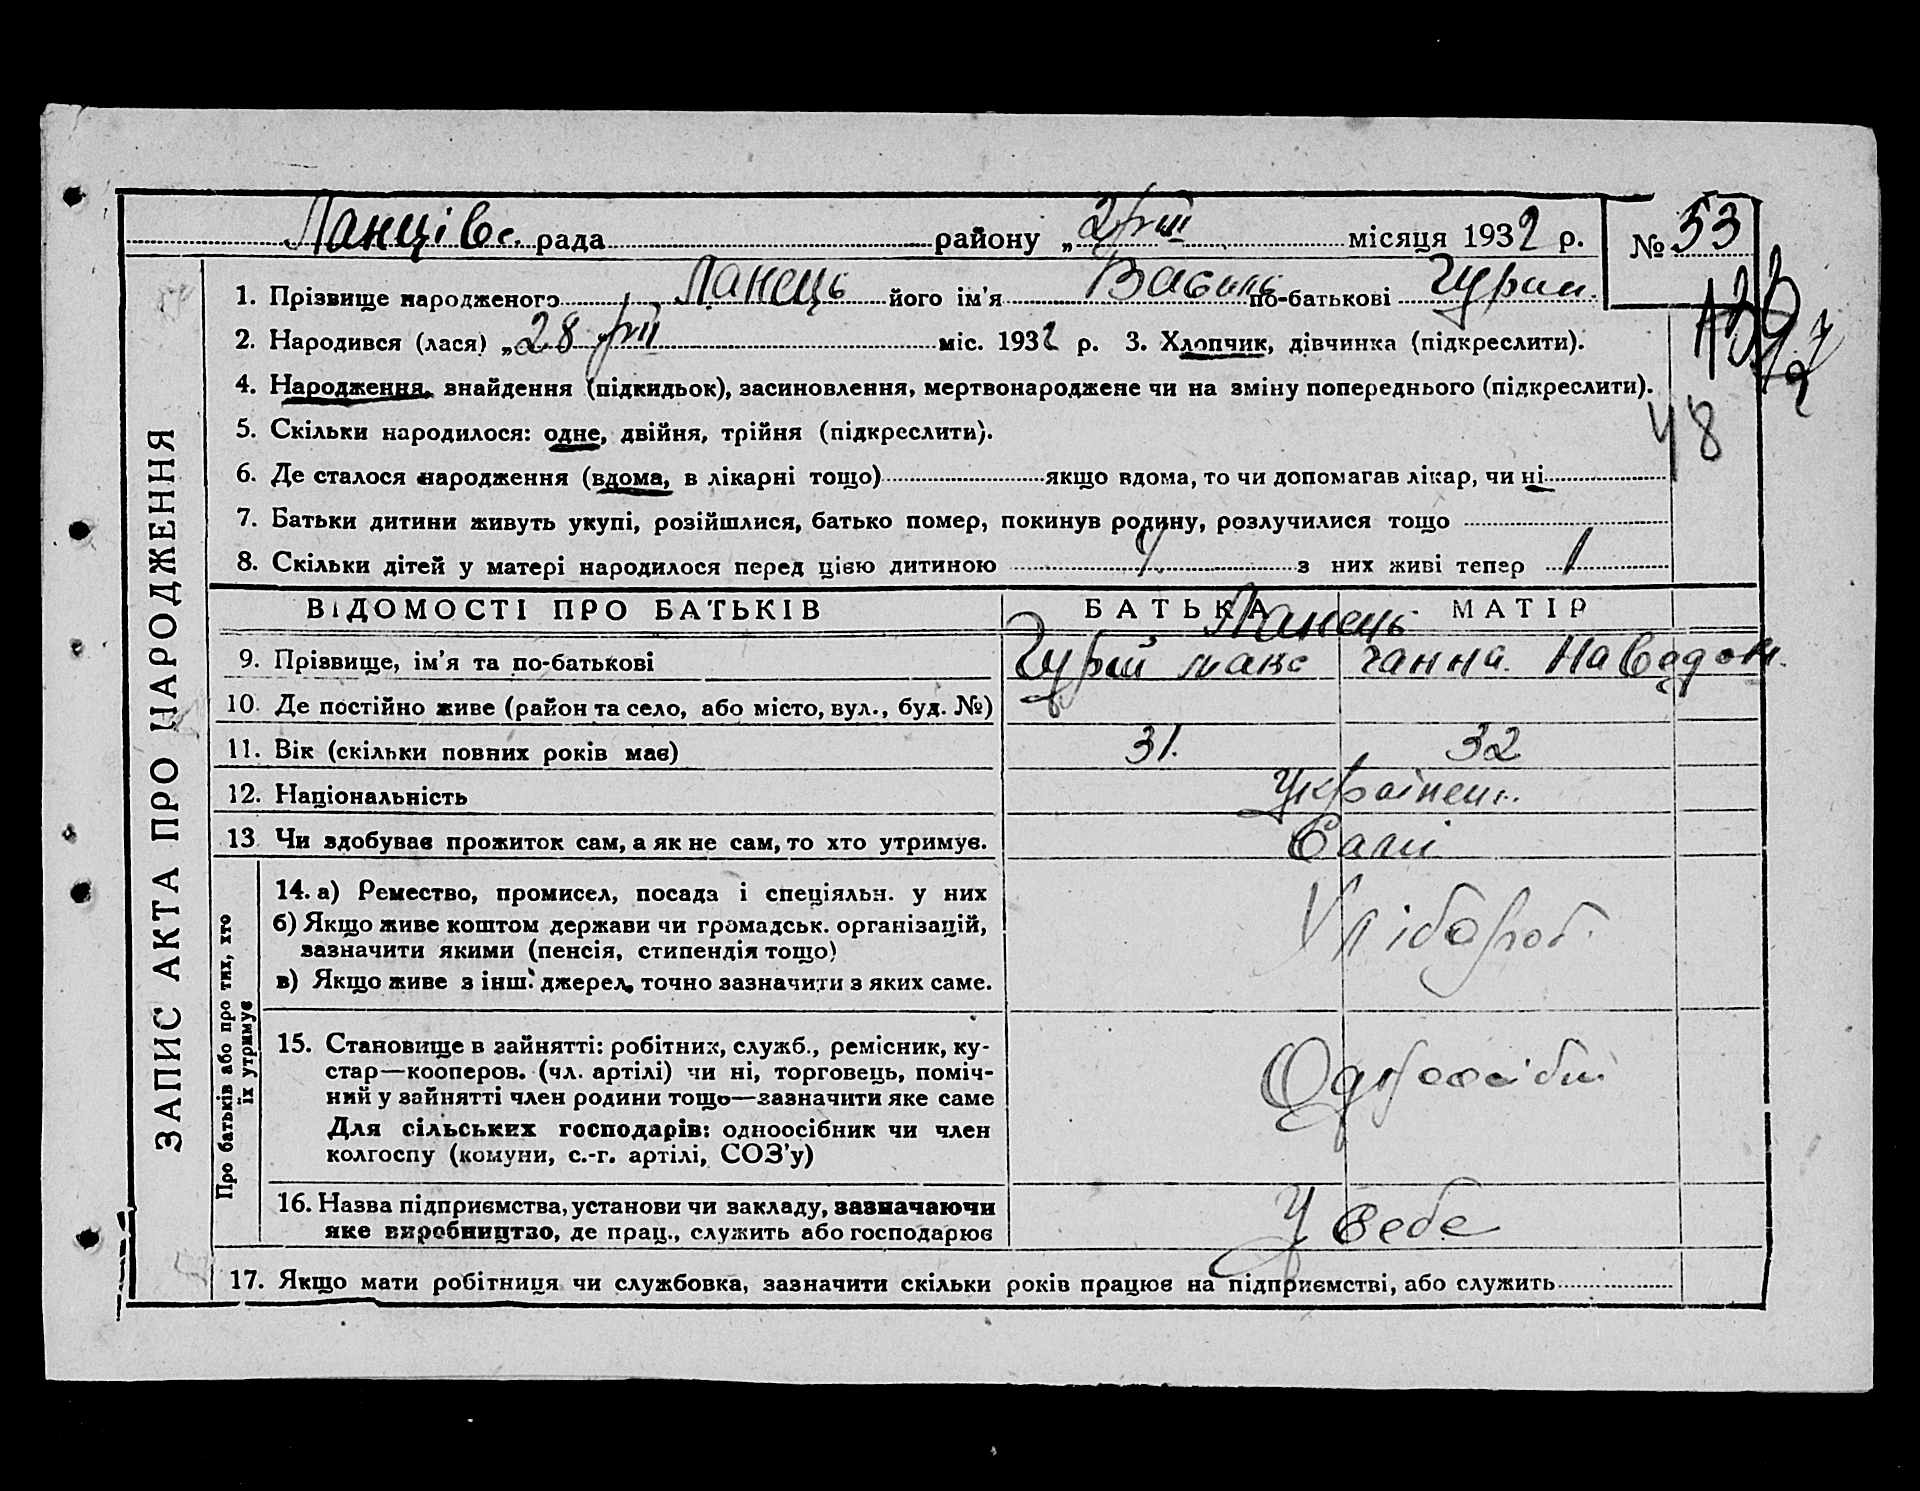 Ланцівс. рада района „2/ІІІ місяця 1932 р. № 53
1. Прізвище народженого Ланець його ім'я Василь по-батькові Гурій.
2. Народився (лася) „28/ІІ міс. 1932 р. 3. Хлопчик, дівчинка (підкреслити).
4. Народження, внайдення (підкидьок), засиновлення, мертвонароджене чи на зміну попереднього (підкреслити).
48
5. Скільки народилося: одне, двійня, трійня (підкреслити).
6. Де сталося народження (вдома, в лікарні тощо) якщо вдома, то чи допомагав лікар, чи ні
7. Батьки дитини живуть укупі, розійшлися, батько помер, покинув родину, розлучилися тощо
8. Скільки дітей у матері народилося перед цією дитиною 4 з них живі тепер 1
ВІДОМОСТІ ПРО БАТЬКІВ БАТЬКА МАТІР
Ланець
9. Прізвище, ім'я та по-батькові Гурій макс ганна.
10. Де постійно живе (район та село, або місто, вул., буд. №)
11. Вік (скільки повних років має) 31. 32
12. Національність Українец.
13 Чи здобував прожиток сам, а як не сам, то хто утримує. Самі
14. а) Ремество, промисел, посада і спеціяльн. у них
б) Якщо живе коштом держави чи громадськ. організацій,
зазначити якими (пенсія, стипендія тощо)
в) Якщо живе з інш. джерел, точно зазначити з яких саме.
Хлібороб.
15. Становище в зайнятті: робітник, служб., ремісник, ку-
стар—кооперов. (чл. артілі) чи ні, торговець, поміч-
ний у зайнятті член родини тощо—зазначити яке саме
Для сільських господарів: одноосібник чи член
колгоспу (комуни, с.-г. артілі, СОЗ'у)
16. Назва підприємства, установи чи закладу, зазначаючи
яке виробництво, де прац., служить або господарює
У себе
17. Якщо мати робітниця чи службовка, зазначити скільки років працює на підприємстві, або служить
ЗАПИС АКТА ПРО НАРОДЖЕННЯ
Про батьків або про тих, хто
їх утримує